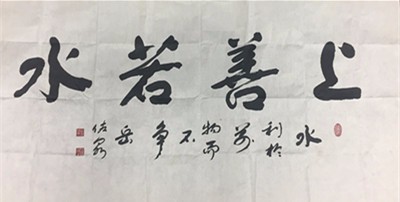 上善若水
水利於萬物而不争岳